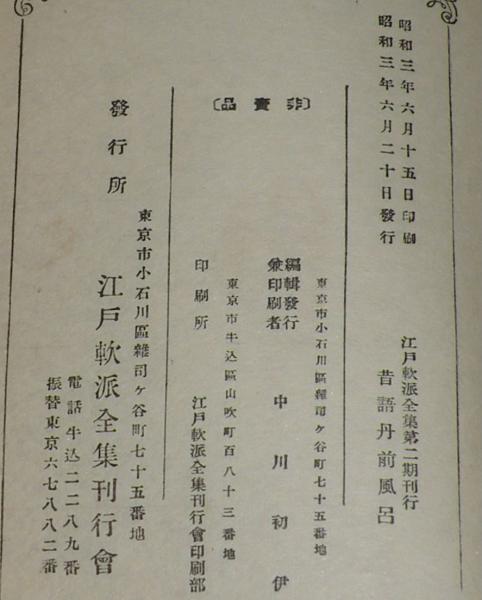 昭和三年六月十五日印刷
昭和三年六月二十日發行
江戸軟派全集第二期刊行
昔語丹前風呂
〔非賣品〕
東京市小石川區雜司ヶ谷町七十五番地
編輯發行
兼印刷者
中川初伊
東京市牛込區山吹町百八十三番地
印刷所
江戸軟派全集刊行會印刷部
東京市小石川區雜司ヶ谷町七十五番地
發行所
江戸軟派全集刊行會
電話牛込二二八九番
振替東京六七八八二番